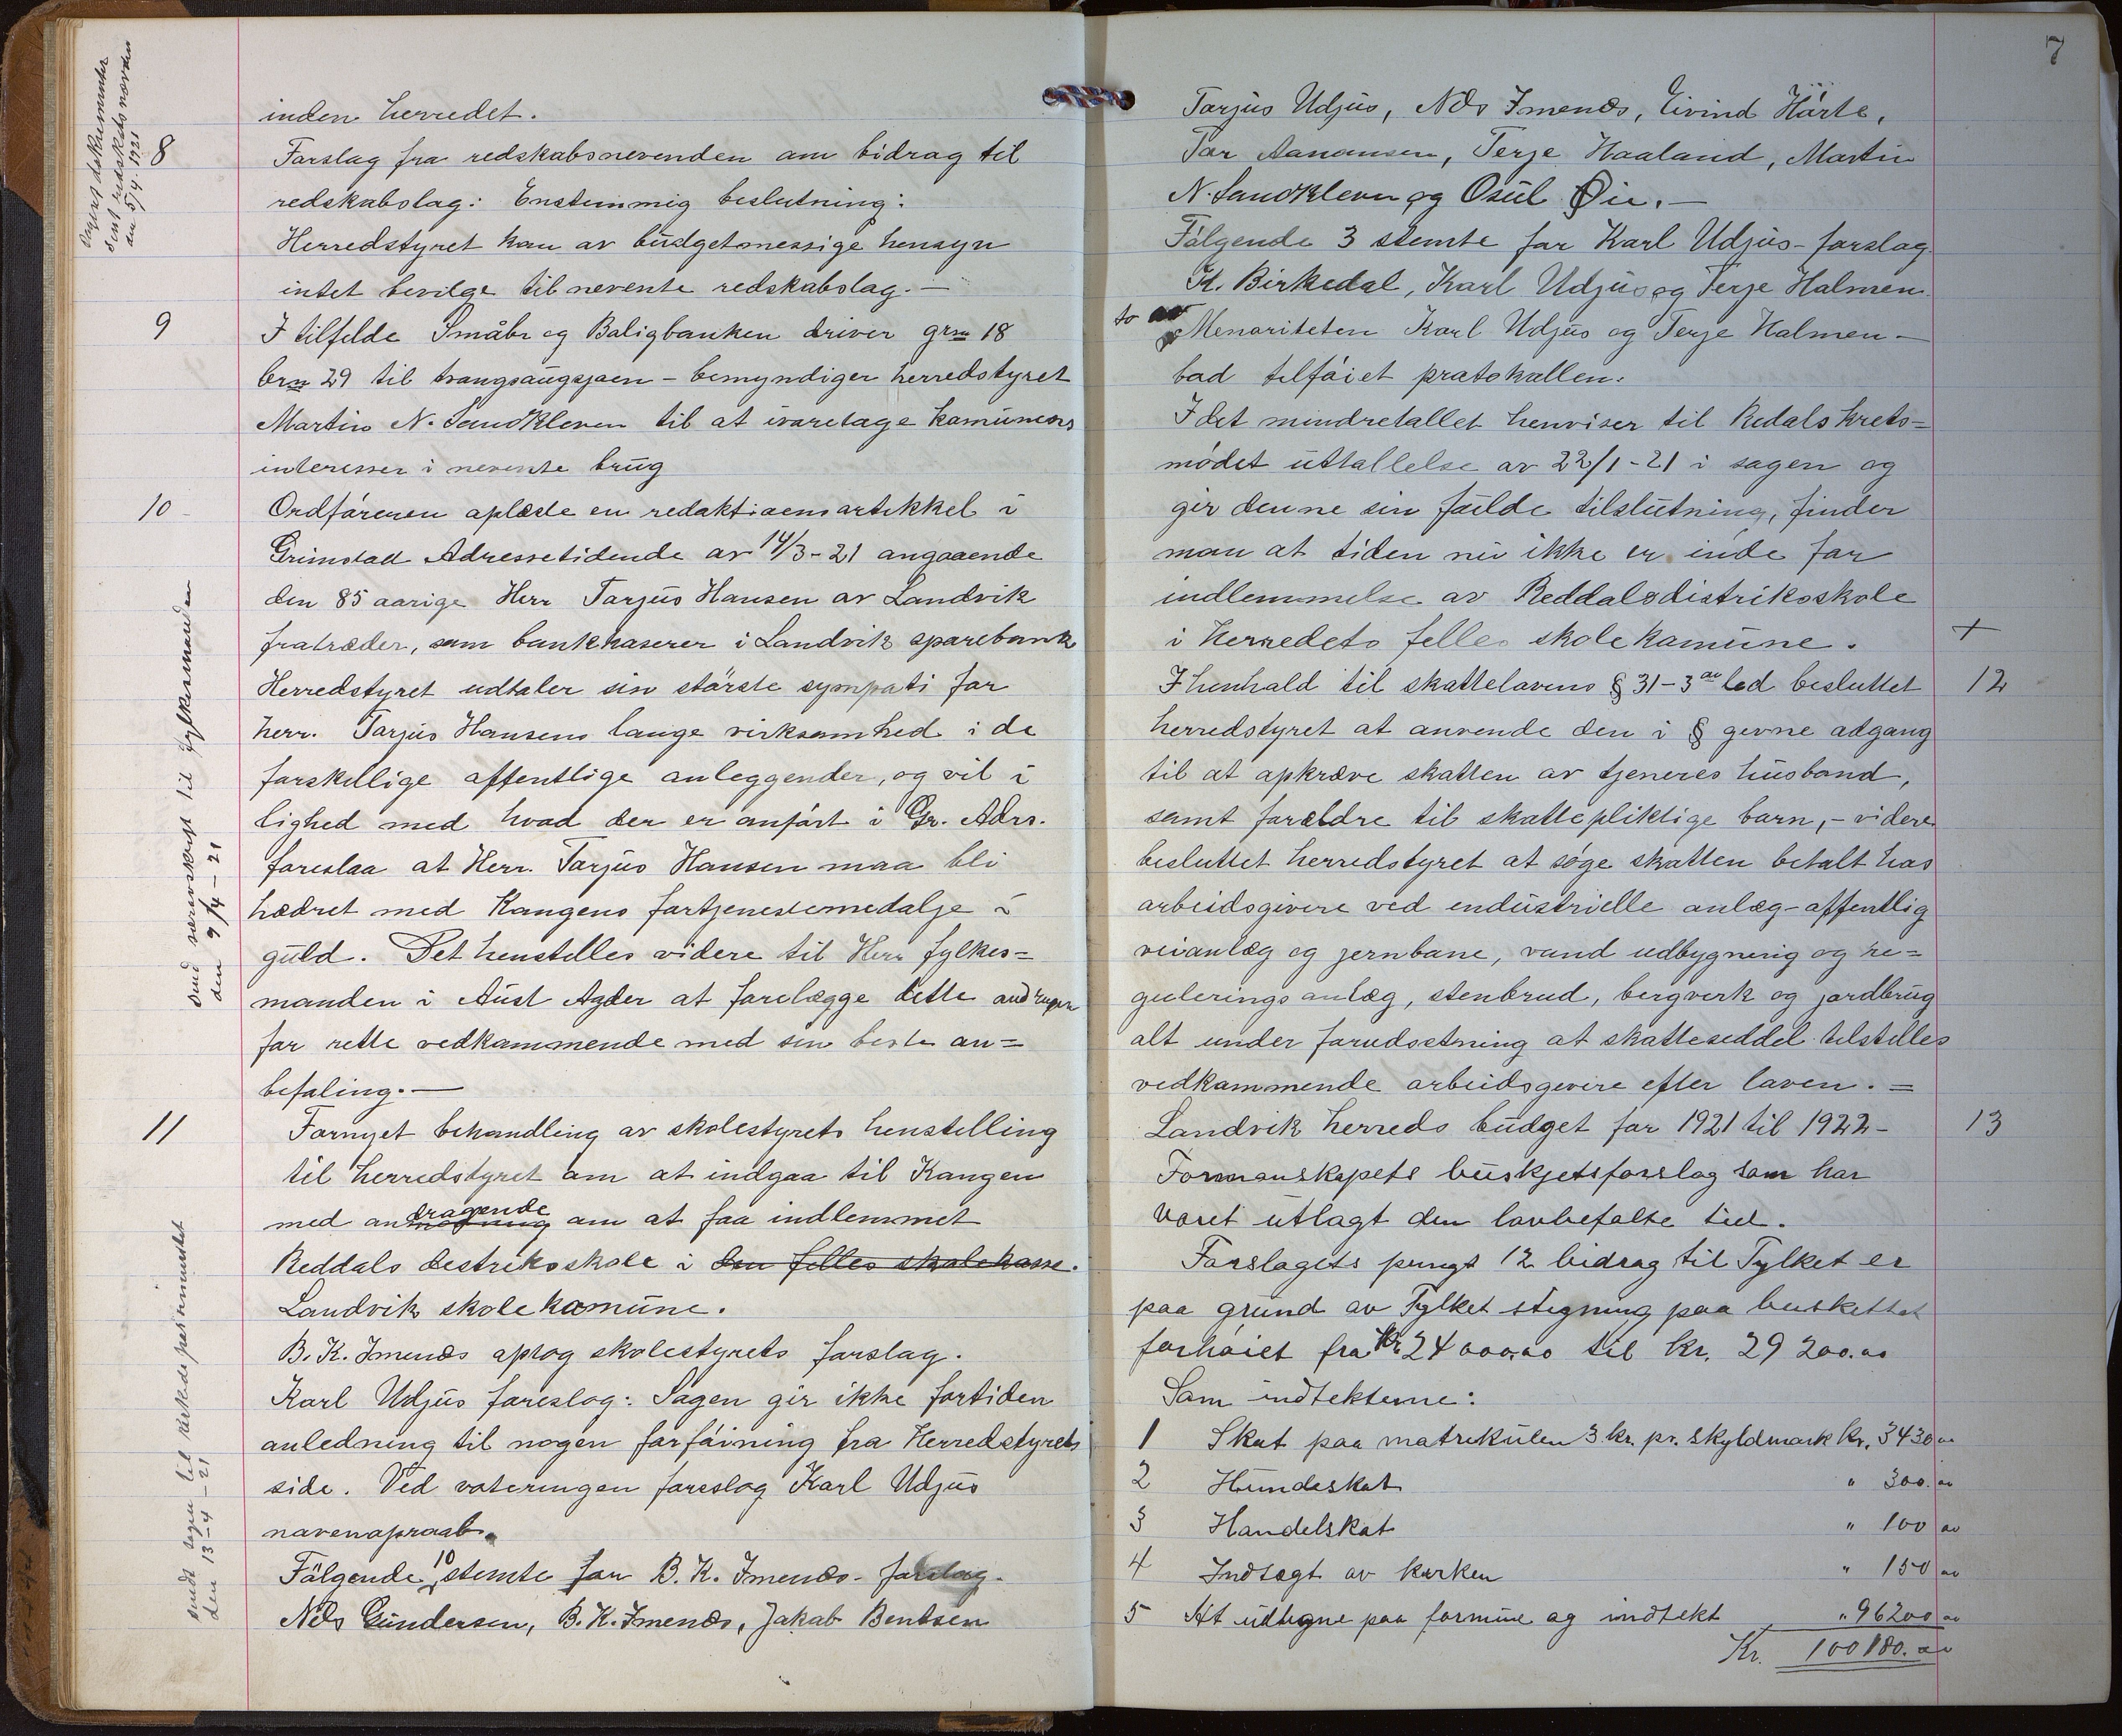 inden herredet.
8
Forslag fra redskabsnevenden om bidrag til
redskabslag: Enstemmig beslutning:
Herredstyret kan av budgetmessige hensyn
intet bevilge til nevente redskabslag.—
9
I tilfelde Småbr og Boligbanken driver grn 18
brn 29 til tvangsaugsjoen – bemyndiger herredstyret
Martin N. Sandkleven til at ivaretage komunens
interesser i nevente brug
10-
Ordføreren oplæste en redaktioensartikkel i
Grimstad Adressetidende av 14/3-21 angaaende
den 85 aarige Herr Tarjus Hansen av Landvik
fratræder, som bankkaserer i Landvik sparebank
Herredstyret udtaler sin största sympati for
herr. Tarjus Hansens lange virksomhed i de
forskellige offentlige anleggender, og vil i
lighed med hvad der er anført i Gr. Adrs.
foreslaa at Herr. Tarjus Hansen maa bli
hædret med Kongens fortjenestemedalje i
guld. Det henstilles videre til Herr fylkes=
manden i Aust Agder at forelægge dette
for rette vedkommende med sin beste an=
befaling.—
11
Fornyet behandling av skolestyrets henstilling
til herredstyret om at indgaa til Kongen
dragende
med an om at faa indlemmet
Reddals destriksskole i den felles skolekasse.
Landvik skolekomune.
B. K. Imenes optog skolestyrets forslag.
Karl Udjus foreslog: Sagen gir ikke fortiden
anledning til nogen forføining fra Herredstyrets
side. Ved voteringen foreslog Karl Udjus
navneopraab.
Følgende 10 stemte for B. K. Imenes- forslag.
Nils Gundersen, B. K. Imenes, Jakob Bentsen
den 5/4. 1921
Send særutskrift til fylkesmanden
den 9/4 – 21
Sendt sagen til
den 13-4-21
7
Tarjus Udjus, Nils Imenes, Eivind Hørte,
Tor Aanonsen, Terje Haaland, Martin
N. Sandkleven og Osul Øie.—
Følgende 3 stemte for Karl Udjus-forslag.
K. Birkedal, Karl Udjus og Terje Holmen.
to av
Menoriteten Karl Udjus og Terje Holmen—
bad tilføiet protokollen:
I det mindretallet henviser til Redals krets=
mødet uttallelse av 22/1-21 i sagen og
gir denne sin fulde tilslutning, finder
man at tiden nu ikke er inde for
indlemmelse av Reddalsdistriksskole
i herredets felles skolekomune.
+
12
I henhold til skattelovens § 31-3 led besluttet
herredstyret at anvende den i § gevne adgang
til at opkræve skatten av tjeneres husbond,
samt forældre til skattepliktige barn,- videre
besluttet herredstyret at søge skatten betalt hos
arbeidsgivere ved endustrielle anlæg-offentlig
veianlæg og jernbane, vand udbygning og re=
gulerings anlæg, stenbrud, bergverk og jordbrug
alt under forudsetning at skatteseddel tilstilles
vedkommende arbeidsgevire efter loven.=
13
Landvik herreds budget for 1921 til 1922-
Formanskapets buskjetsforslag som har
været utlagt den lovbefalte tid.
Forslagets pungt 12 bidrag til Fylket er
paa grund av Fylket stegning paa buskettet
forhøiet fra Kr 24 000.00 til kr. 29 200.00
Som indtekterne:
1 Skat paa matrekulen 3 kr. pr. skyldmark kr. 3430 00
2 Hundeskat " 300.00
3 Handelskat " 100 00
4 Indtægt av kirken " 150 00
5 At udlegne paa formue og indtekt " 96200 00
Kr. 100180.00